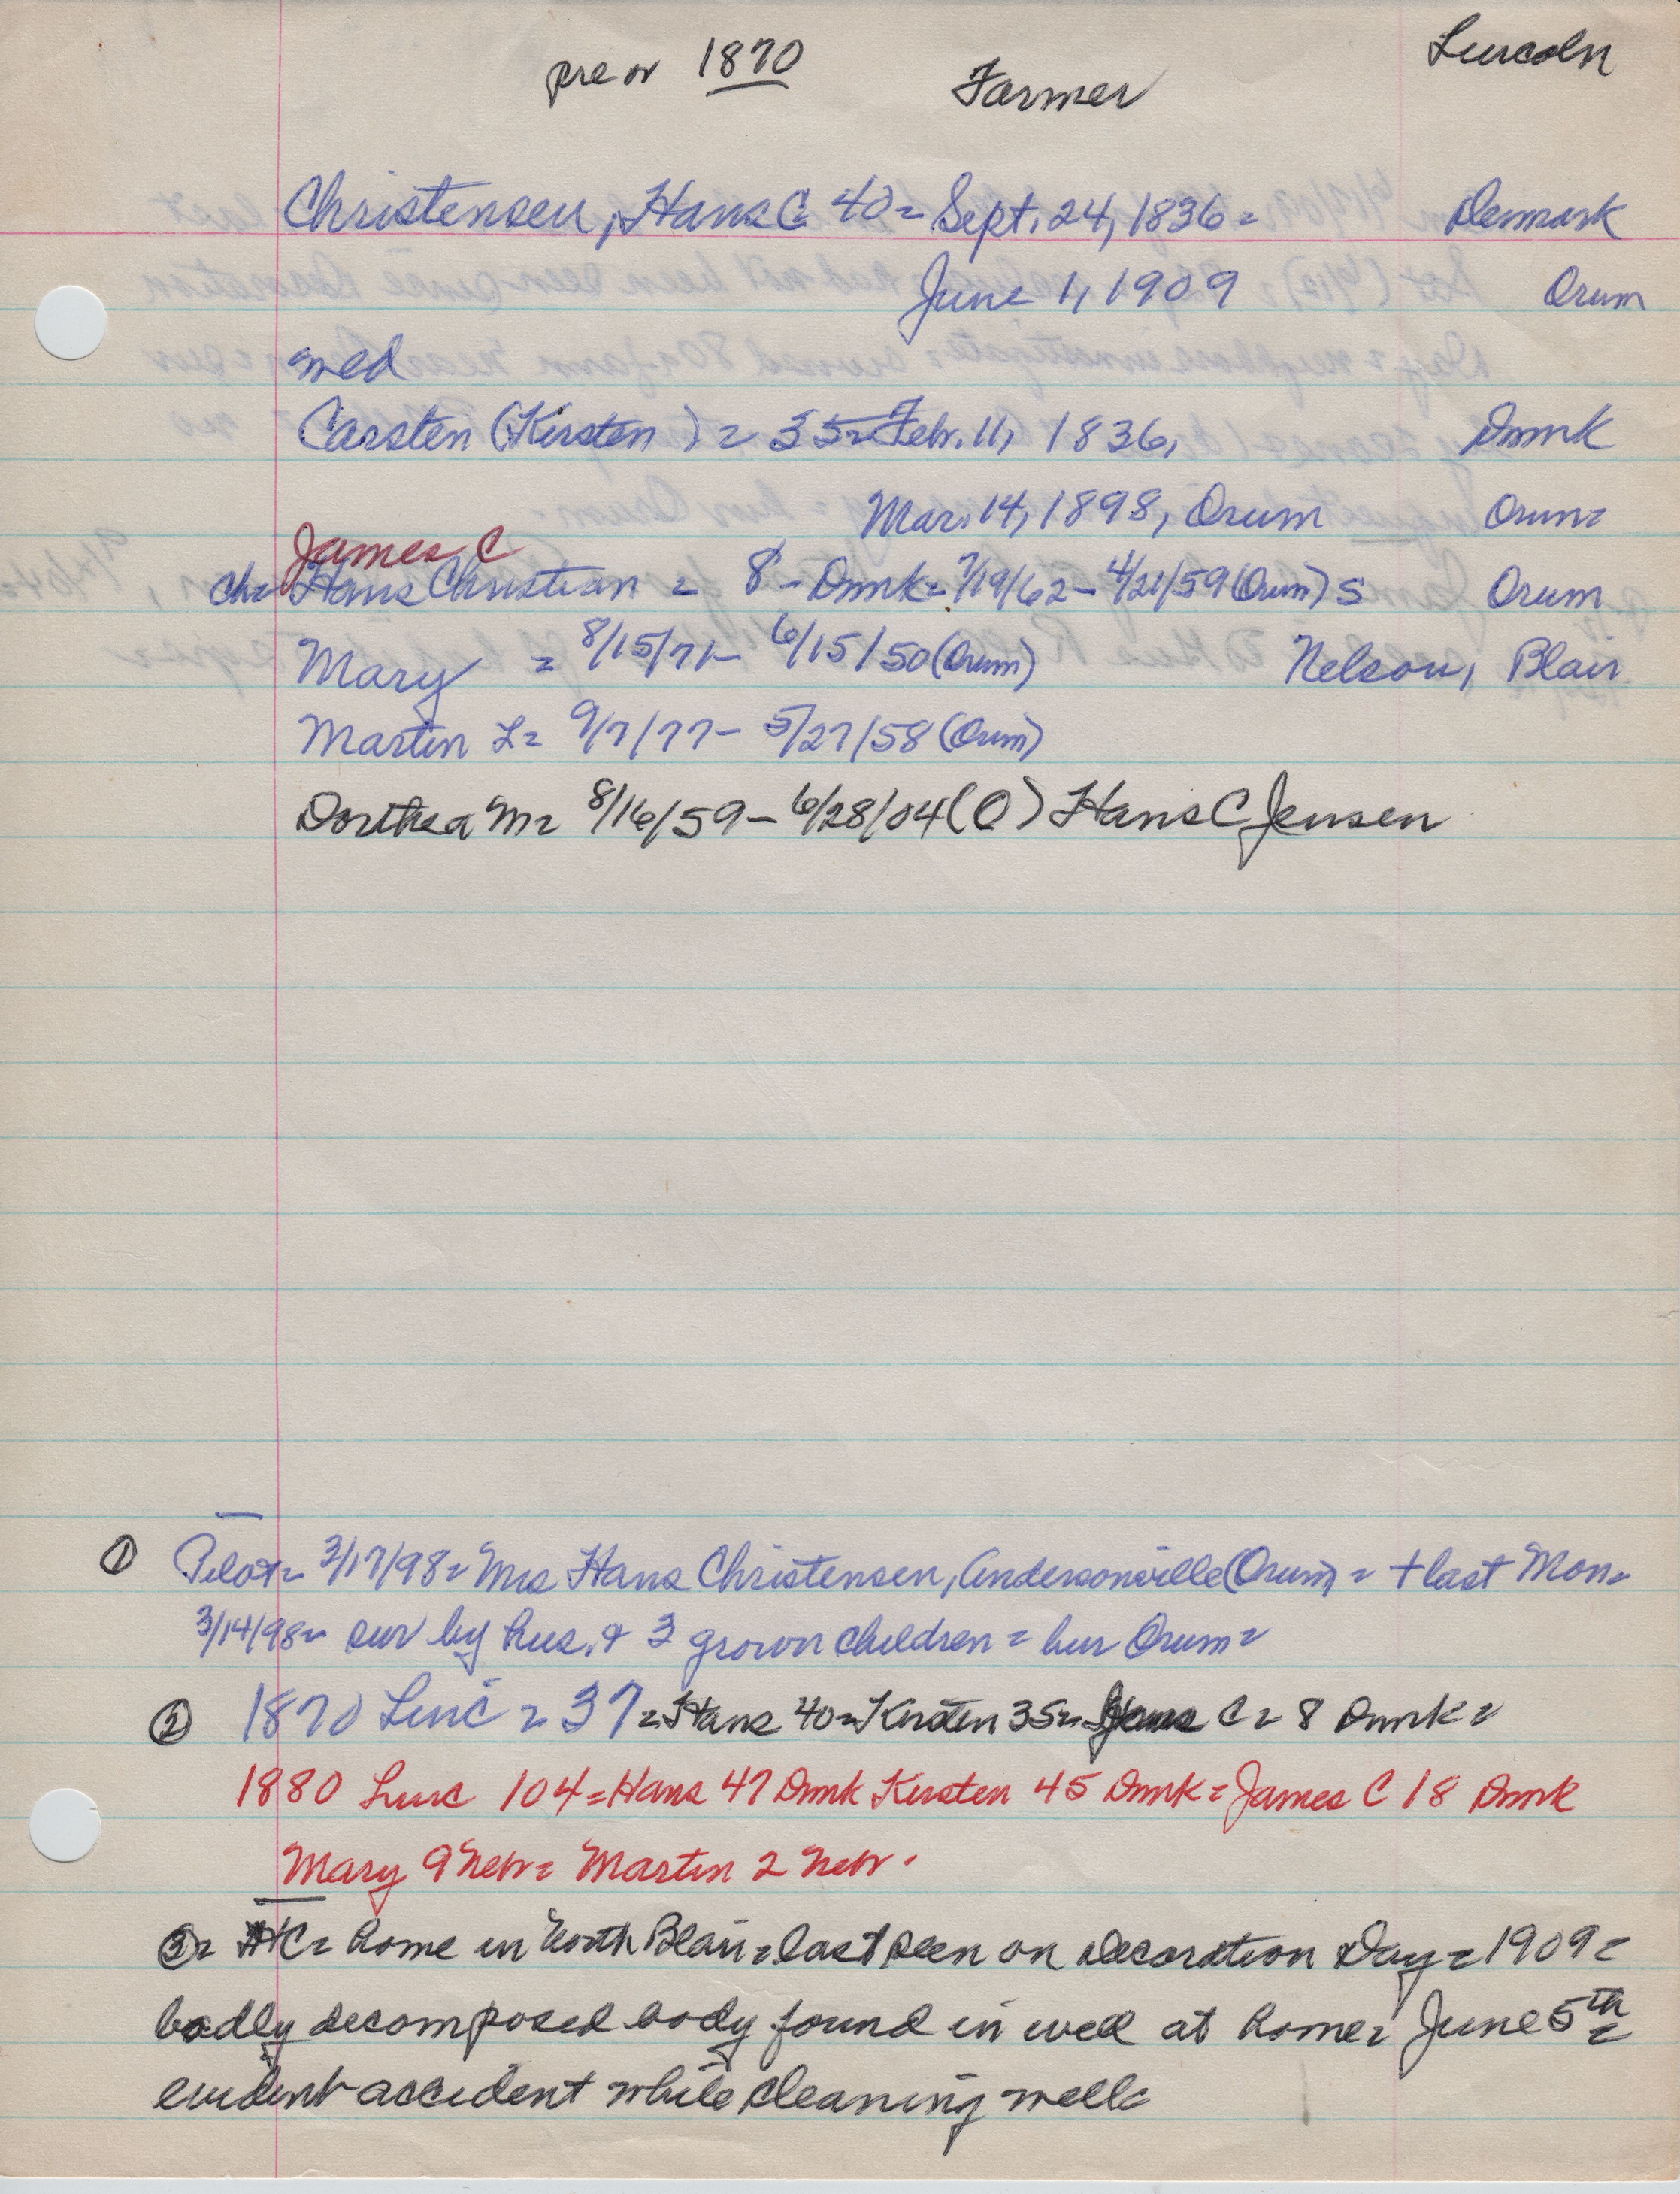 pre or 1870 Farmer Lincoln
Christensen, Hans C= 40= Sept. 24, 1836= Denmark
June 1, 1909 Orum
med
Carsten (Kirsten) = 35= Feb. 11, 1836, Dnmk
Mar. 14, 1898, Orum Orum=
James C
Ch= Hans Christian = 8 - Dnmk= 7/19/62- 4/21/59 (Orum) S Orum
Mary = 8/15/71- 6/15/50 (Orum) Nelson, Blair
Martin L= 9/7/77- 5/27/58 (Orum)
Dorthea M= 8/16/59- 6/28/04 (O) Hans C Jensen
① Pilot= 3/17/98= Mrs Hans Christensen, Andersonville (Orum) = + last Mon=
3/14/98= sur by hus. & 3 grown children = bur Orum=
② 1870 Linc = 37 = Hans 40= Kirsten 35= C= 8 Dnmk=
1880 Linc 104= Hans 47 Dnmk Kirsten 45 Dnmk= James C 18 Dnmk
Mary 9 Neb= Martin 2 Nebr.
③= HC= home in North Blair= last seen on Decoration Day= 1909=
badly decomposed body found in well at home= June 5th=
evident accident while cleaning well=